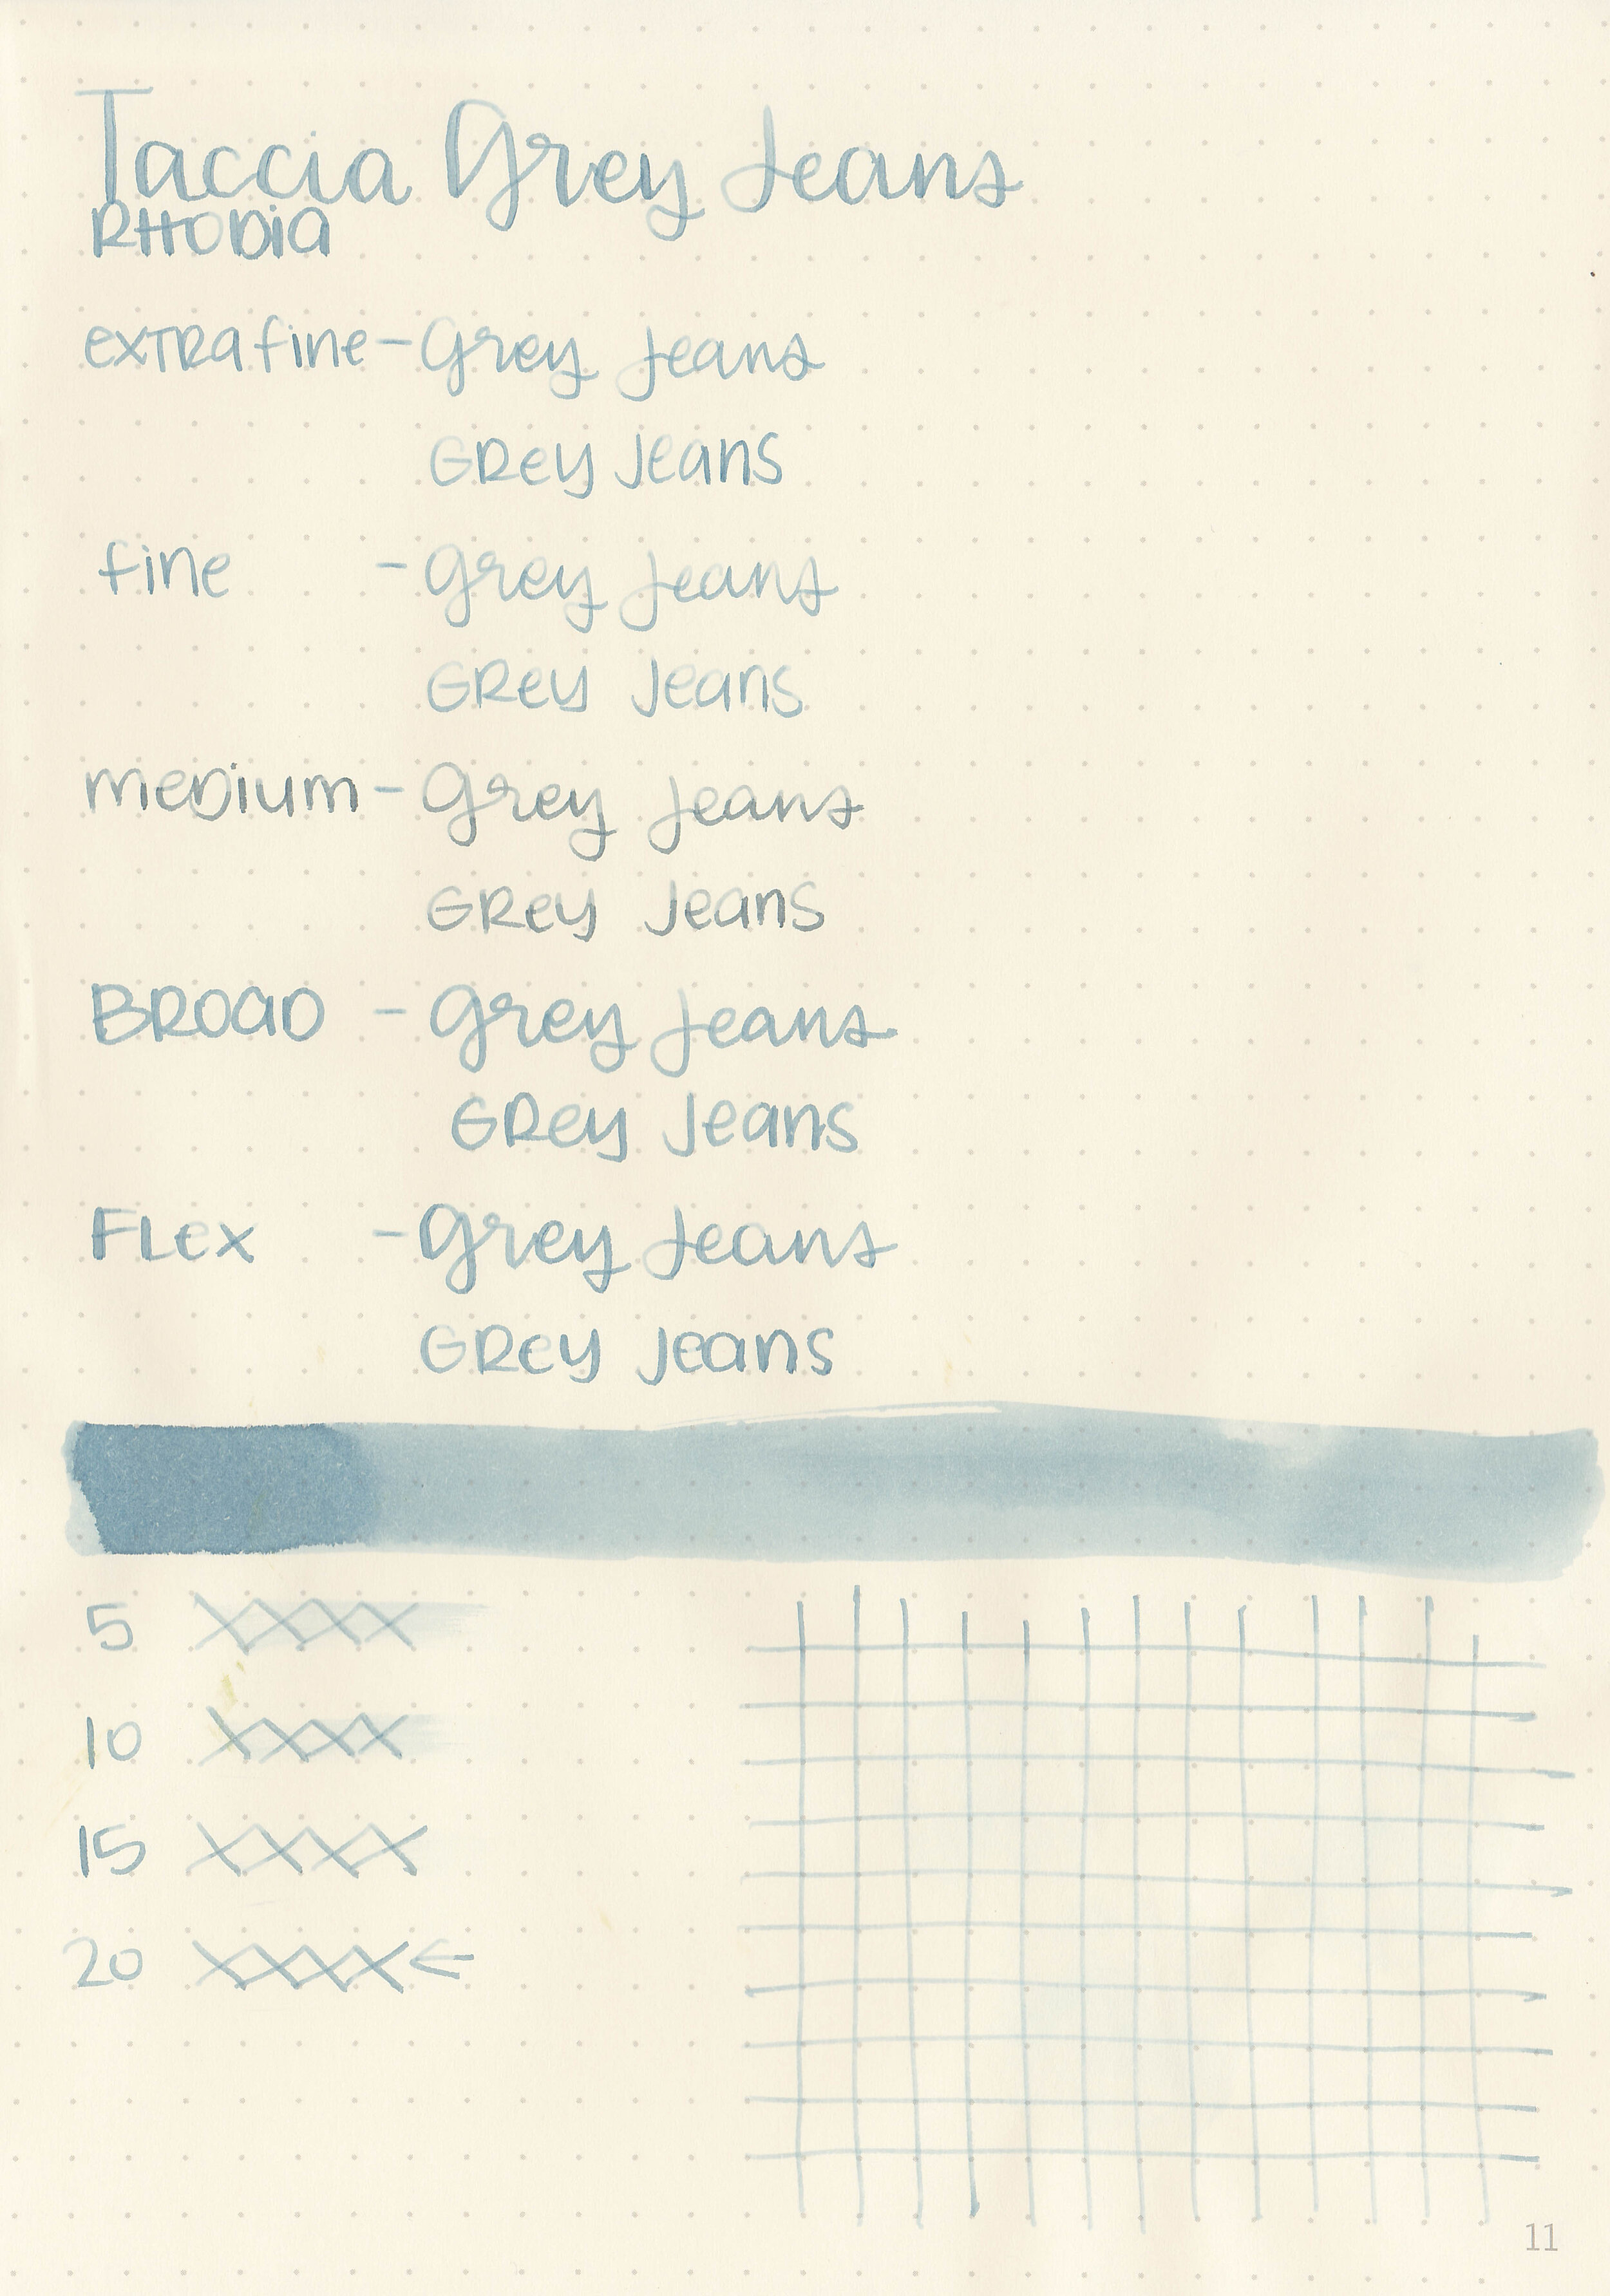 Taccia Grey Jeans
RHODia
exTRa fine - Grey Jeans
GRey Jeans
fine - Grey Jeans
GRey Jeans
meDium - Grey Jeans
GRey Jeans
BROaD - Grey Jeans
GRey Jeans
FLex - Grey Jeans
GRey Jeans
5 XXXX
10 XXXX
15 XXXX
20 XXXX ←
11